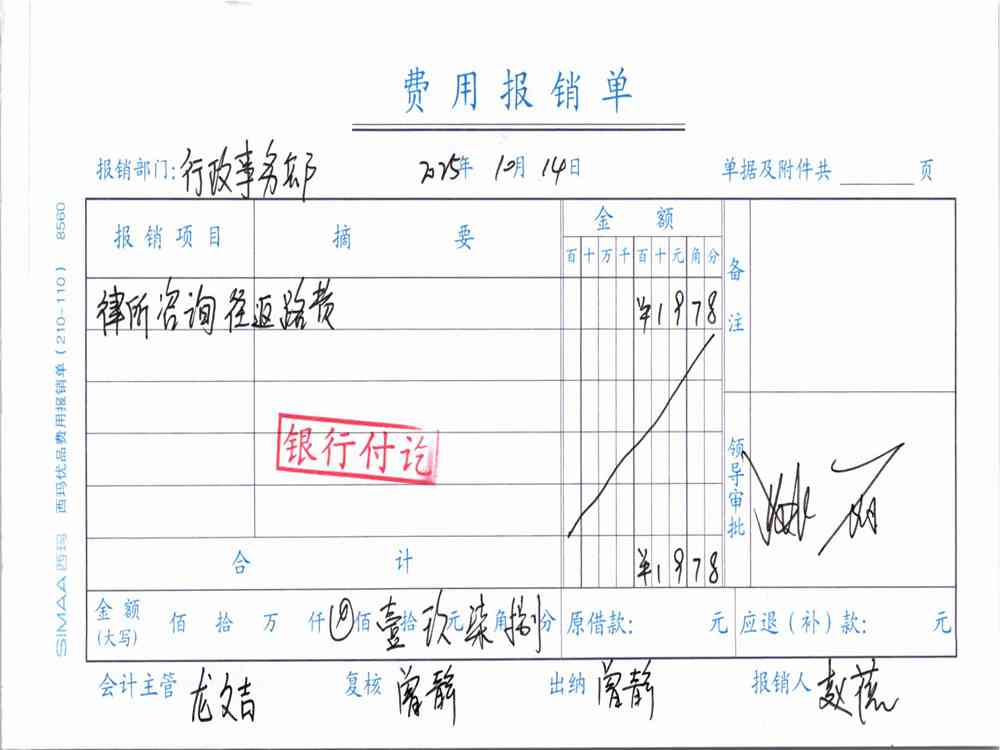 费用报销单
报销部门:行政事务部 2025年 10月 14日 单据及附件共 页
报销项目 摘要 金额 备注
百十万千百十元角分
律所咨询往返路费 ¥1978
银行付讫
领导审批
合计 ¥1978
金额(大写) 佰拾万仟⊗佰壹拾玖元柒角捌分 原借款: 元 应退(补)款: 元
会计主管 龙文吉 复核 曾静 出纳 曾静 报销人
SIMAA西玛 西玛优品费用报销单(210-110) 8560